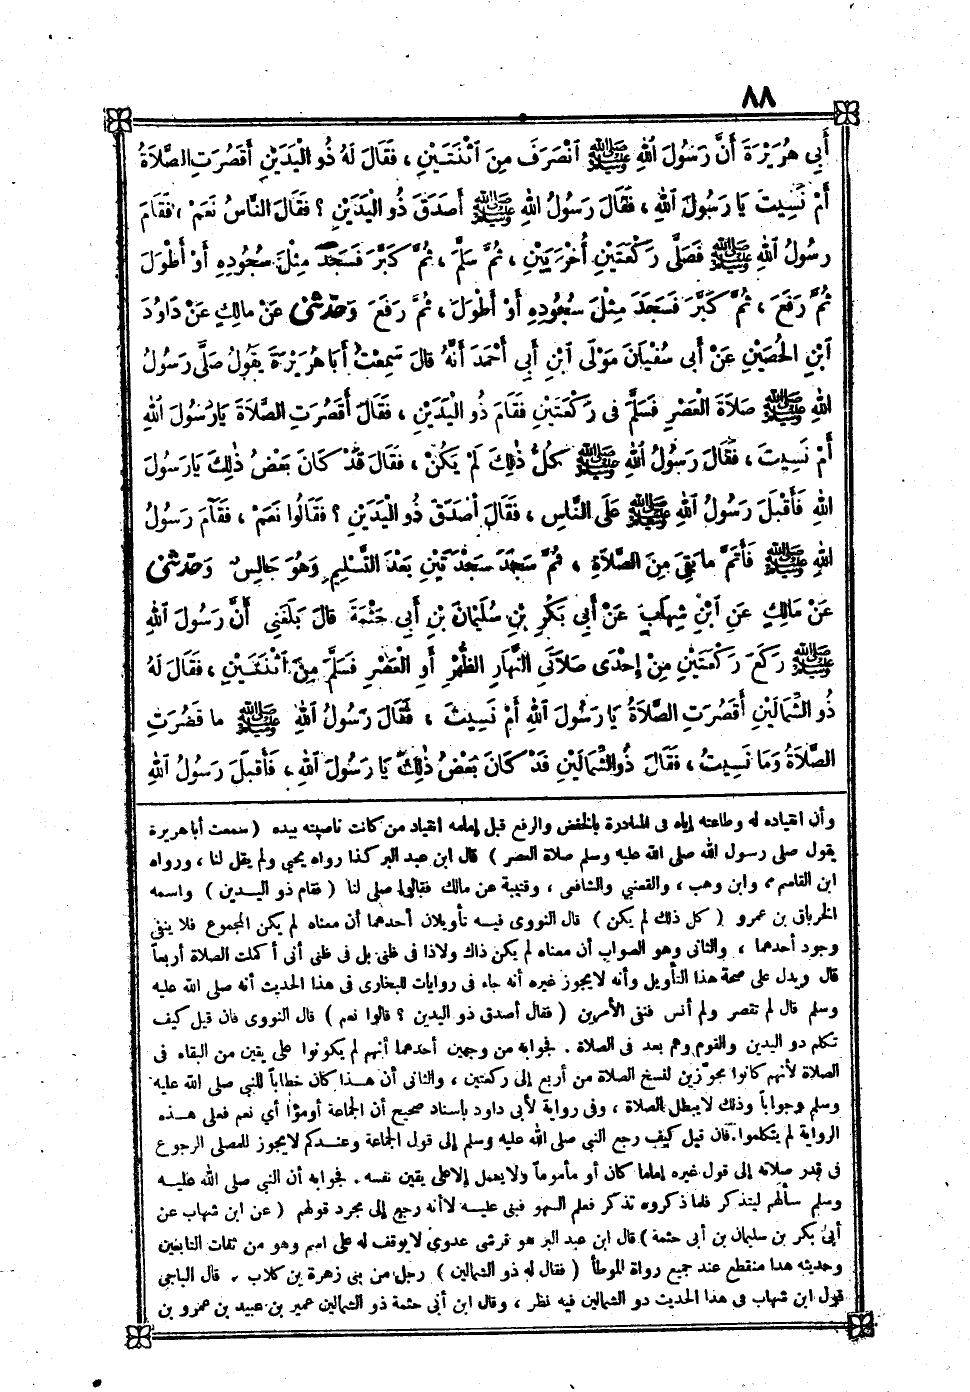 ٨٨
أَبِي هُرَيْرَةَ أَنَّ رَسُولَ اللهِ ﷺ انْصَرَفَ مِنَ اثْنَتَيْنِ ، فَقَالَ لَهُ ذُو الْيَدَيْنِ أَقَصُرَتِ الصَّلَاةُ
أَمْ نَسِيتَ يَا رَسُولَ اللهِ ، فَقَالَ رَسُولُ اللهِ ﷺ أَصَدَقَ ذُو الْيَدَيْنِ ؟ فَقَالَ النَّاسُ نَعَمْ ، فَقَامَ
رسُولُ اللهِ ﷺ فَصَلَّى رَكْعَتَيْنِ أُخْرَيَيْنِ ، ثُمَّ سَلَّمَ ، ثُمَّ كَبَّرَ فَسَجَدَ مِثْلَ سُجُودِهِ أَوْ أَطْوَلَ
ثُمَّ رَفَعَ ، ثُمَّ كَبَّرَ فَسَجَدَ مِثْلَ سُجُودِهِ أَوْ أَطْوَلَ ، ثُمَّ رَفَعَ وَحَدَّثَنِي عَنْ مالِكٍ عَنْ دَاوُدَ
ابْنِ الْحُصَيْنِ عَنْ أَبِي سُفْيَانَ مَوْلَى ابْنِ أَبِي أَحْمَدَ أَنَّهُ قالَ سَمِعْتُ أَبَا هُرَيْرَةَ يَقُولُ صَلَّى رَسُولُ
اللهِ ﷺ صَلَاةَ الْعَصْرِ فَسَلَّمَ فِى رَكْعَتَيْنِ فَقَامَ ذُو الْيَدَيْنِ ، فَقَالَ أَقَصُرَتِ الصَّلَاةَ يَا رَسُولَ اللهِ
أَمْ نَسِيتَ ، فَقَالَ رَسُولُ اللهِ ﷺ كلُّ ذٰلِكَ لَمْ يَكُنْ ، فَقَالَ قَدْ كَانَ بَعْضُ ذٰلِكَ يَا رَسُولَ
اللهِ فَأَقْبَلَ رَسُولُ اللهِ ﷺ عَلَى النَّاسِ ، فَقَالَ أَصَدَقَ ذُو الْيَدَيْنِ ؟ فَقَالُوا نَعَمْ ، فَقَامَ رَسُولُ
اللهِ ﷺ فَأَتَمَّ ما بَقِيَ مِنَ الصَّلَاةِ ، ثُمَّ سَجَدَ سَجْدَتَيْنِ بَعْدَ التَّسْلِيمِ وَهُوَ جَالِسٌ وَحَدَّثَنِي
عَنْ مَالِكٍ عَنِ ابْنِ شِهَابٍ عَنْ أَبِي بَكْرِ بْنِ سُلَيْمَانَ بْنِ أَبِي حَثْمَةَ قالَ بَلَغَنِي أَنَّ رَسُولَ اللهِ
ﷺ رَكَعَ رَكْعَتَيْنِ مِنْ إِحْدَى صَلَاتَيِ النَّهَارِ الظُّهْرِ أَوِ الْعَصْرِ فَسَلَّمَ مِنَ اثْنَتَيْنِ ، فَقَالَ لَهُ
ذُو الشِّمَالَيْنِ أَقَصُرَتِ الصَّلَاةُ يَا رَسُولَ اللهِ أَمْ نَسِيتَ ، فَقَالَ رَسُولُ اللهِ ﷺ ما قَصُرَتِ
الصَّلَاةُ وَمَا نَسِيتُ ، فَقَالَ ذُو الشِّمَالَيْنِ قَدْ كَانَ بَعْضُ ذٰلِكَ يَا رَسُولَ اللهِ ، فَأَقْبَلَ رَسُولُ اللهِ
وأن انقياده له وطاعته إياه فى المبادرة بالخفض والرفع قبل إمامه انقياد من كانت ناصيته بيده ( سمعت أبا هريرة
يقول صلى رسول الله صلى الله عليه وسلم صلاة العصر ) قال ابن عبد البر كذا رواه يحيى ولم يقل لنا ، ورواه
ابن القاسم ، وابن وهب ، والقعنبي والشافعى ، وقتيبة عن مالك فقالوا صلى لنا ( فقام ذو اليدين ) واسمه
الخرباق بن عمرو ( كل ذلك لم يكن ) قال النووى فيه تأويلان أحدهما أن معناه لم يكن المجموع فلا ينفى
وجود أحدهما ، والثانى وهو الصواب أن معناه لم يكن ذاك ولاذا فى ظنى بل فى ظنى أنى أكملت الصلاة أربعاً
قال ويدل على صحة هذا التأويل وأنه لايجوز غيره أنه جاء فى روايات للبخارى فى هذا الحديث أنه صلى الله عليه
وسلم قال لم تقصر ولم أنس فنفى الأمرين ( فقال أصدق ذو اليدين ؟ قالوا نعم ) قال النووى فان قيل كيف
تكلم ذو اليدين والقوم وهم بعد فى الصلاة . فجوابه من وجهين أحدهما أنهم لم يكونوا على يقين من البقاء فى
الصلاة لأنهم كانوا مجوّزين لنسخ الصلاة من أربع إلى ركعتين ، والثانى أن هذا كان خطاباً للنبي صلى الله عليه
وسلم وجواباً وذلك لايبطل الصلاة ، وفى رواية لأبى داود بإسناد صحيح أن الجماعة أومؤا أي نعم فعلى هذه
الرواية لم يتكلموا . فان قيل كيف رجع النبي صلى الله عليه وسلم إلى قول الجماعة وعندكم لايجوز للمصلى الرجوع
فى قدر صلاته إلى قول غيره إماما كان أو مأموماً ولايعمل إلاعلى يقين نفسه . فجوابه أن النبي صلى الله عليه
وسلم سألهم ليتذكر فلما ذكروه تذكر فعلم السهو فبنى عليه لاأنه رجع إلى مجرد قولهم ( عن ابن شهاب عن
أبى بكر بن سليمان بن أبى حثمة ) قال ابن عبد البر هو قرشى عدوي لايوقف له على اسم وهو من ثقات التابعين
وحديثه هذا منقطع عند جميع رواة الموطأ ( فقال له ذو الشمالين ) رجل من بنى زهرة بن كلاب ، قال الباجي
قول ابن شهاب فى هذا الحديث ذو الشمالين فيه نظر ، وقال ابن أبى حثمة ذو الشمالين عمير بن عبيد بن عمرو بن